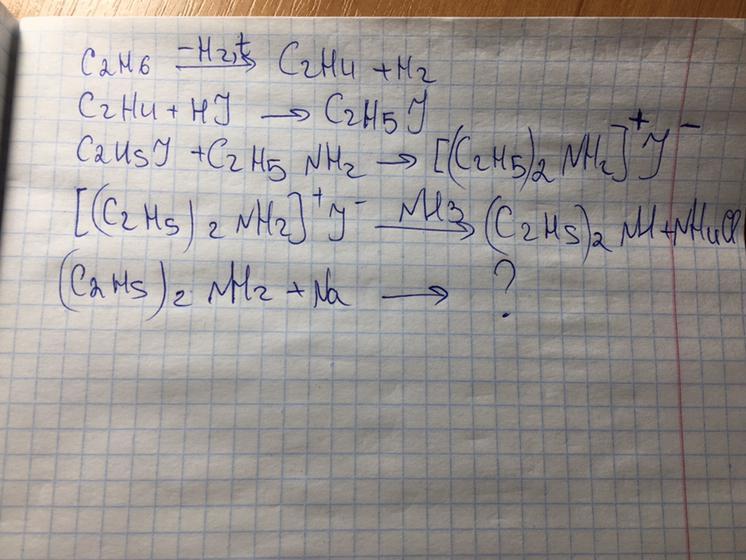 C2H6 —-H2, t→ C2H4 + H2
C2H4 + HJ → C2H5J
C2H5J + C2H5NH2 → [(C2H5)2NH2]+J-
[(C2H5)2NH2]+J- —NH3→ (C2H5)2NH + NH4Cl
(C2H5)2NH2 + Na → ?